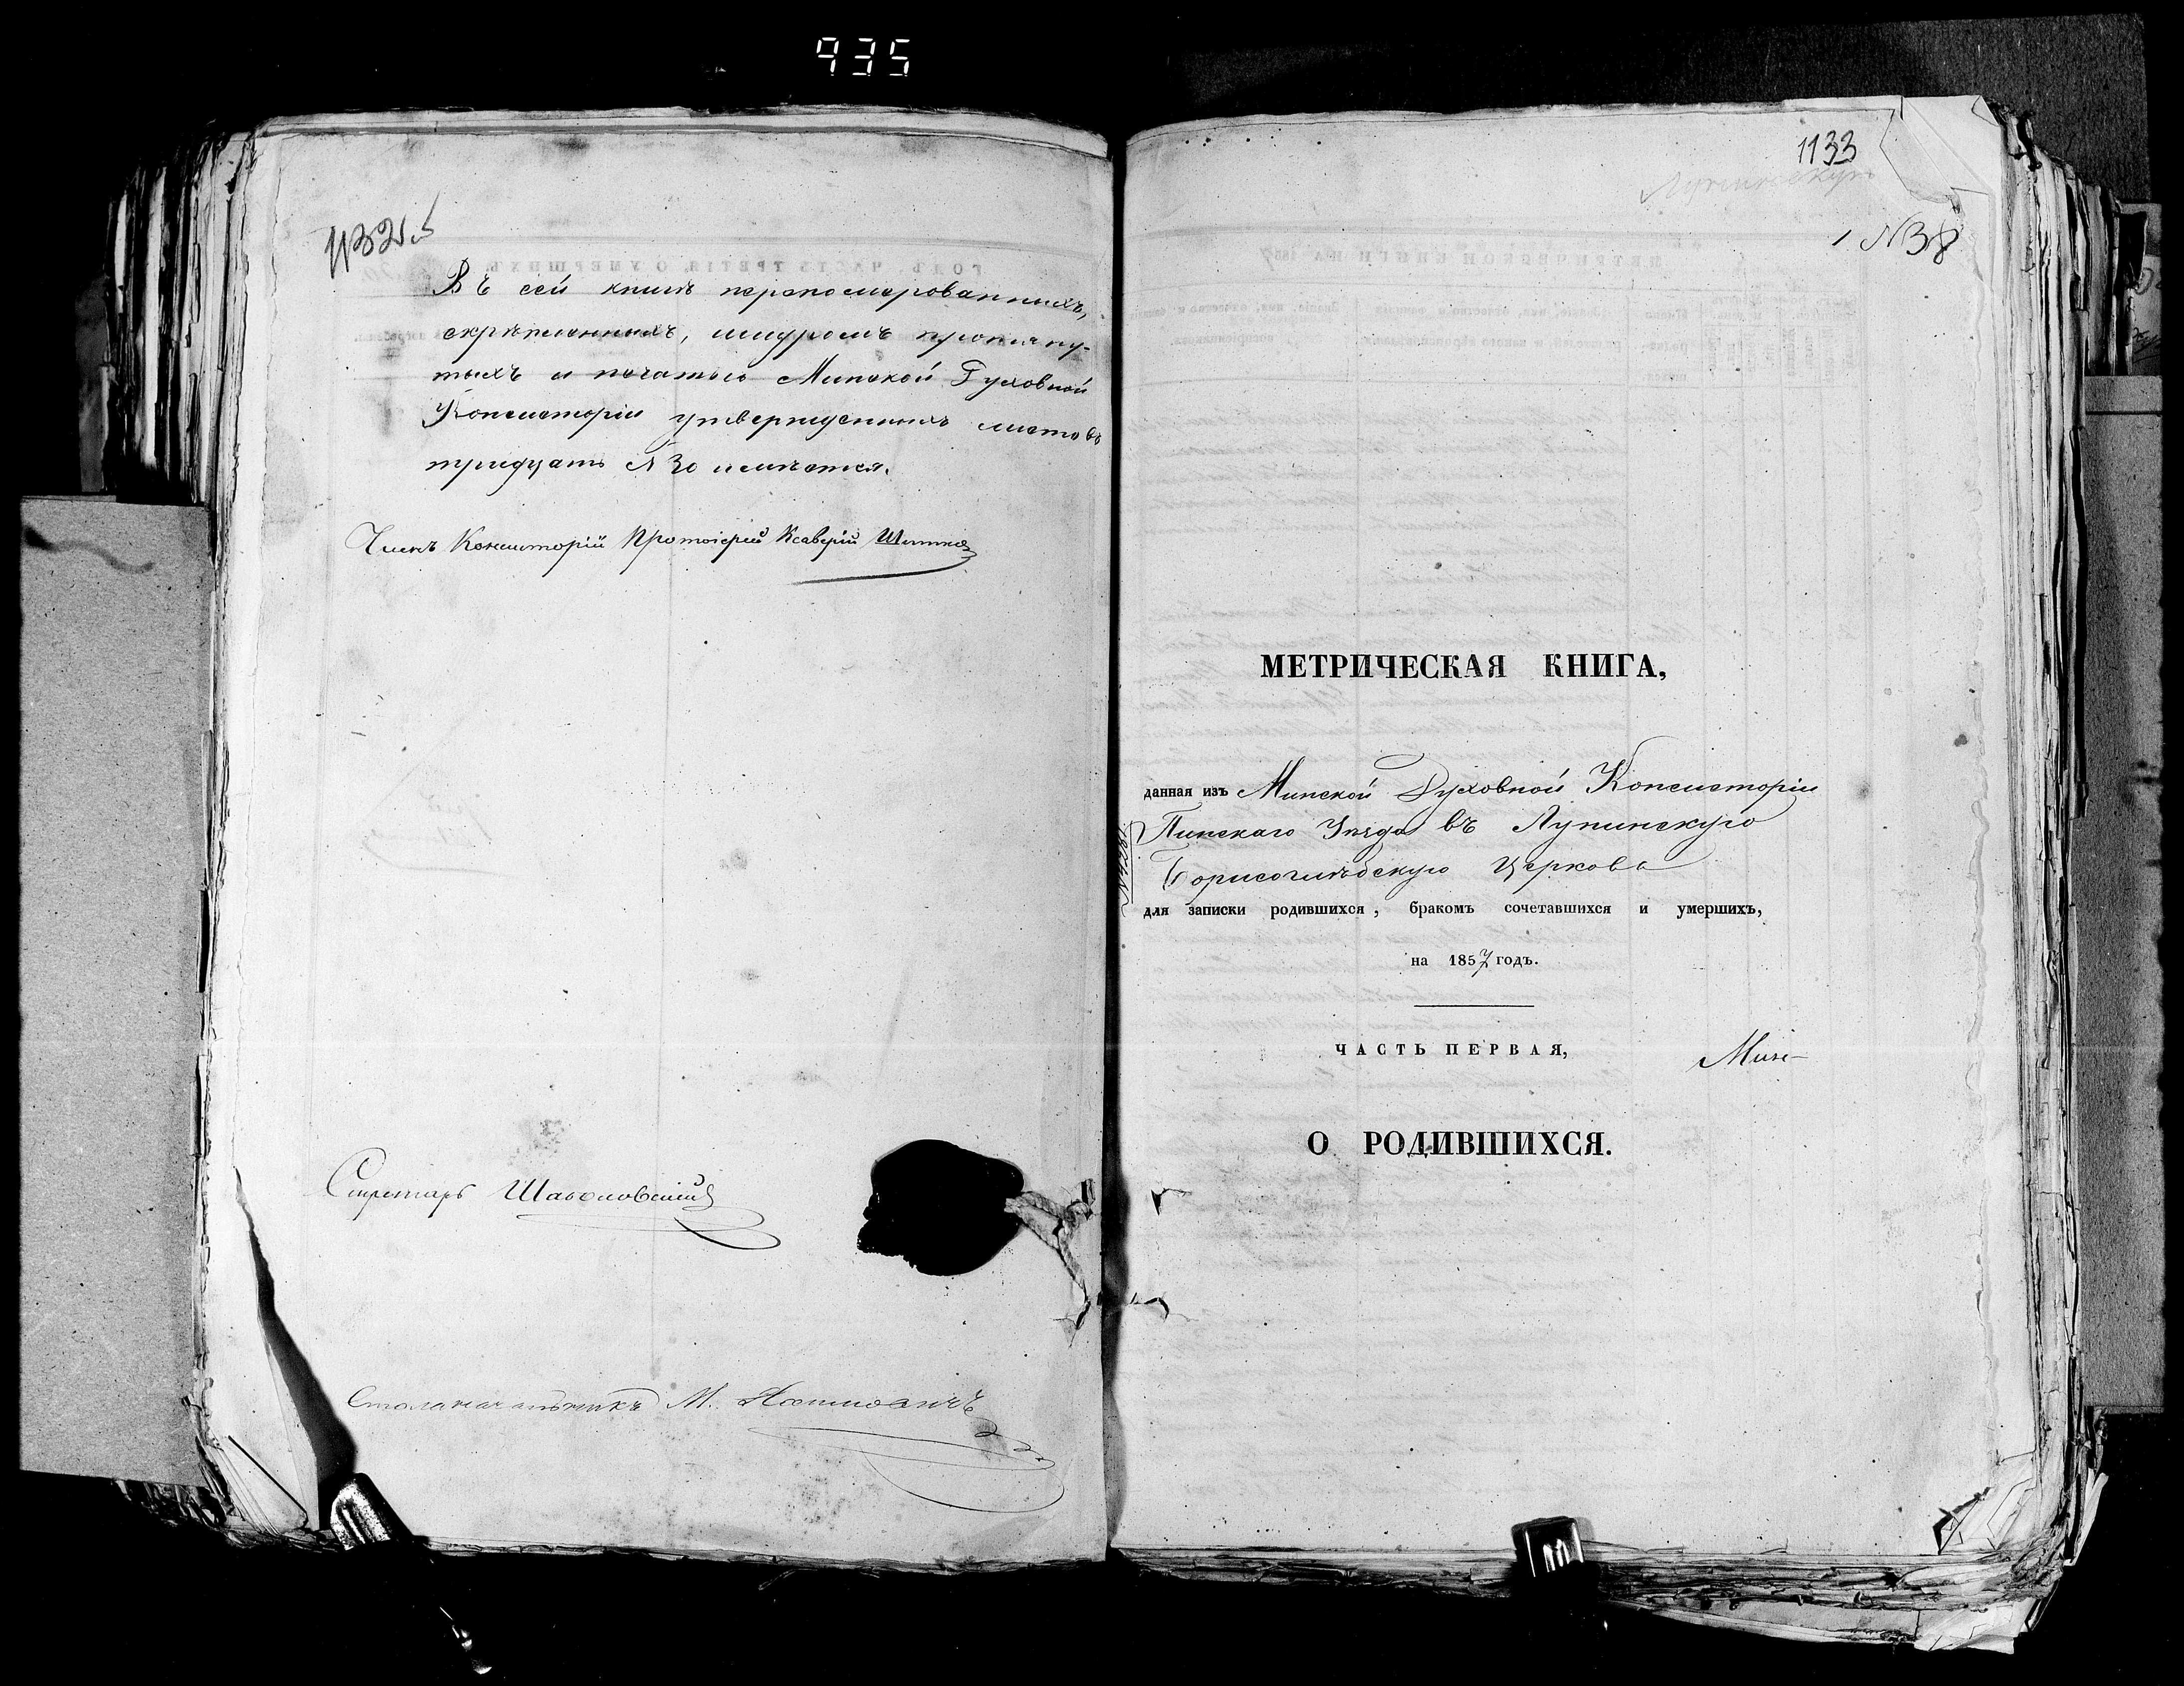 935
1132 об
Въ сей книгѣ перепомерованныхъ,
скрѣпленныхъ, шнуромъ протяну-
тыхъ и печатью Минской Духовной
Консисторіи утвержденныхъ листовъ
тридцать N 30 имѣется.
Членъ Консисторіи Протоіерей Ксаверій
Секретарь
Столоначальникъ М.
1133
Лунинскую
N 38
МЕТРИЧЕСКАЯ КНИГА,
данная изъ Минской Духовной Консисторіи
Пинскаго Уѣзда въ Лунинскую
Борисоглѣбскую Церковь
для записки родившихся, бракомъ сочетавшихся и умершихъ,
на 1857 годъ.
ЧАСТЬ ПЕРВАЯ,
Мин-
О РОДИВШИХСЯ.